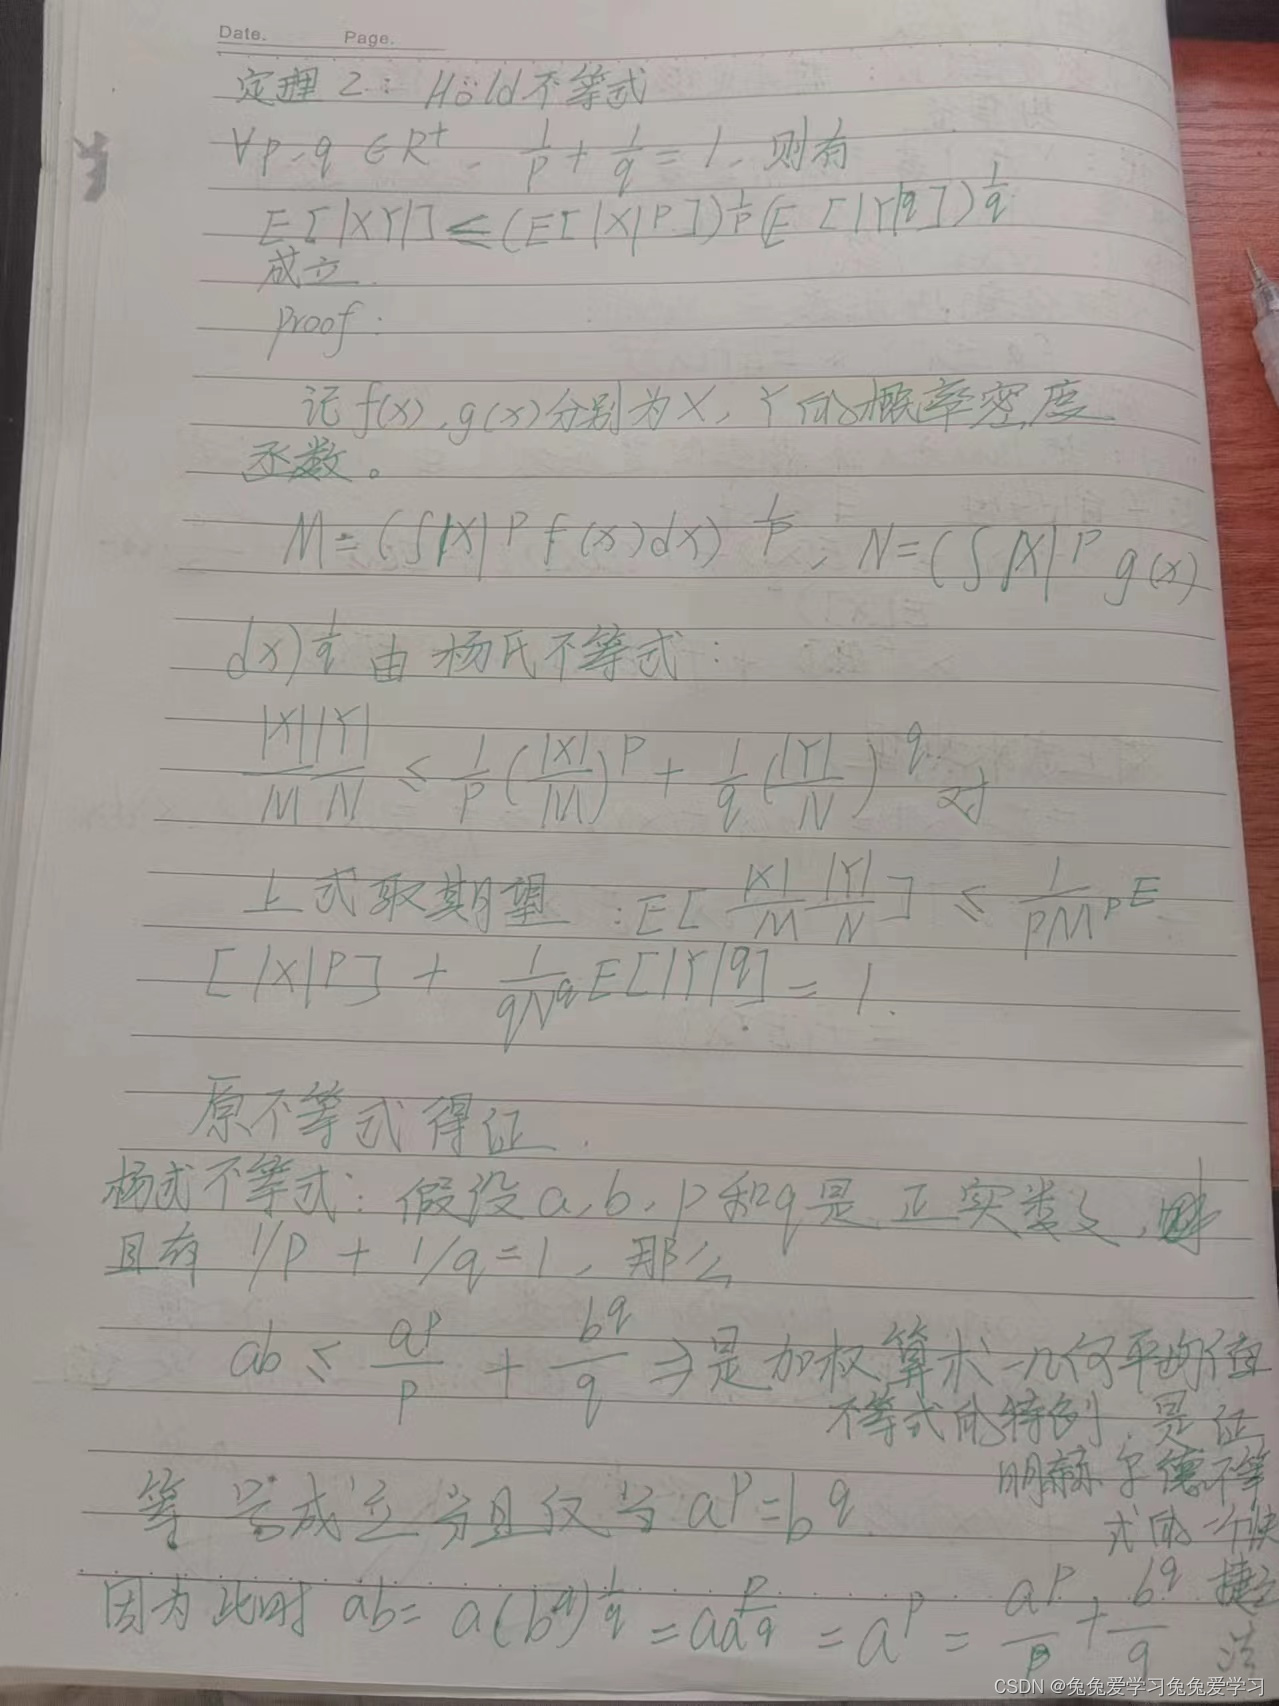 Date. Page.
定理2: Höld不等式
∀p、q∈R⁺、1/p + 1/q = 1、则有
E[|XY|] ≤ (E[|X|^p])^{1/p} (E[|Y|^q])^{1/q}
成立.
proof:
记f(x), g(x)分别为X, Y的概率密度
函数。
M = (∫|X|^p f(x)dx)^{1/p}, N = (∫|X|^p g(x)
dx)^{1/q} 由杨氏不等式:
|X||Y| / MN ≤ 1/p (|X|/M)^p + 1/q (|Y|/N)^q 对
上式取期望: E[|X|/M |Y|/N] ≤ 1/(pM^p) E
[|X|^p] + 1/(qN^q) E[|Y|^q] = 1.
原不等式得证.
杨式不等式: 假设a, b, p和q是正实数,
且有 1/p + 1/q = 1, 那么
ab ≤ a^p/p + b^q/q ⇒是加权算术-几何平均值
不等式的特例, 是证
明赫尔德不等
式的一个快
捷方法
等号成立当且仅当 a^p = b^q
因为此时 ab = a(b^q)^{1/q} = aa^{p/q} = a^p = a^p/p + b^q/q
CSDN @兔兔爱学习兔兔爱学习